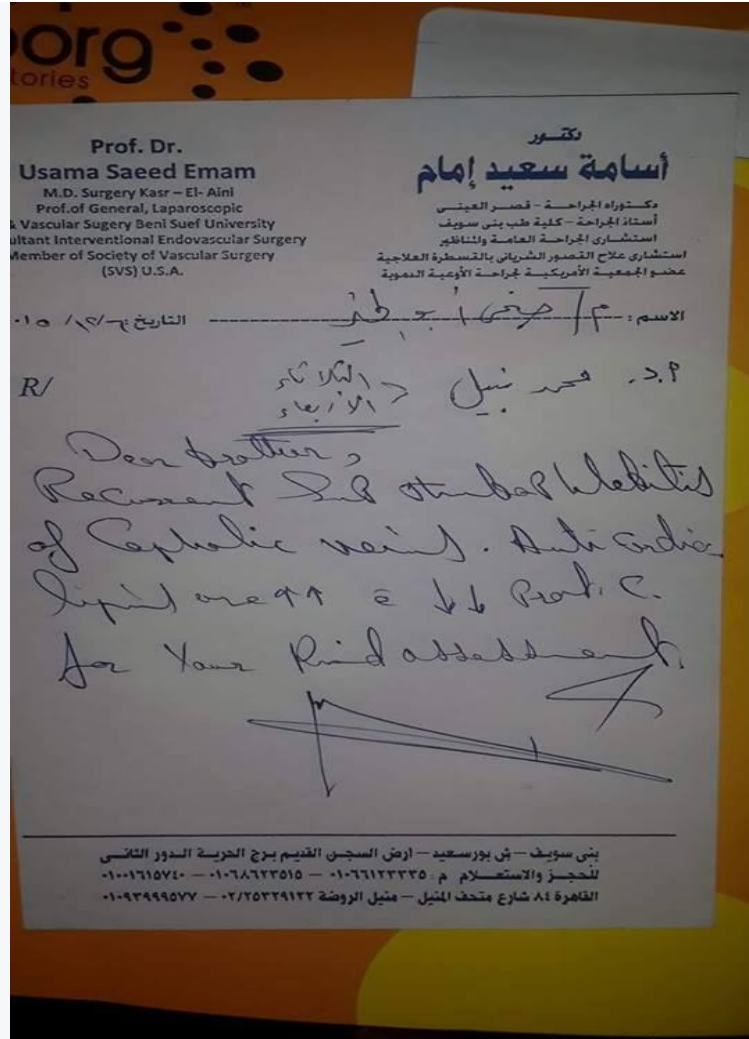 org
tories
Prof. Dr.
Usama Saeed Emam
M.D. Surgery Kasr – El- Aini
Prof.of General, Laparoscopic
& Vascular Sugery Beni Suef University
ultant Interventional Endovascular Surgery
Member of Society of Vascular Surgery
(SVS) U.S.A.
دكتـــور
أسامة سعيد إمام
دكــتوراه الجراحــة - قصــر العينــى
أستاذ الجراحة - كلية طب بنى سويف
استشارى الجراحة العامة والمناظير
استشارى علاج القصور الشريانى بالقسطرة العلاجية
عضــو الجمعيــة الأمريكيــة لجراحــة الأوعيــة الدمويــة
الاسم :
التاريخ :
R/
م.د. محمد نبيل
الثلاثاء
الأربعاء
Dear brother,
Recurrent
of Cephalic veins. Anti cardio
lipid are ↑↑ c̄ ↓↓ Prot. C.
for Your Kind assessment.
بنى سويف – ش بورسعيد – ارض السجن القديم برج الحرية الدور الثانى
للحجـز والاستعـــلام م : ٠١٠٦٦١٢٣٣٣٥ – ٠١٠٦٨٦٢٣٥١٥ – ٠١٠٠١٦١٥٧٤٠
القاهرة ٨٤ شارع متحف المنيل – منيل الروضة ٠٢/٢٥٣٢٩١٢٢ – ٠١٠٩٣٩٩٩٥٧٧